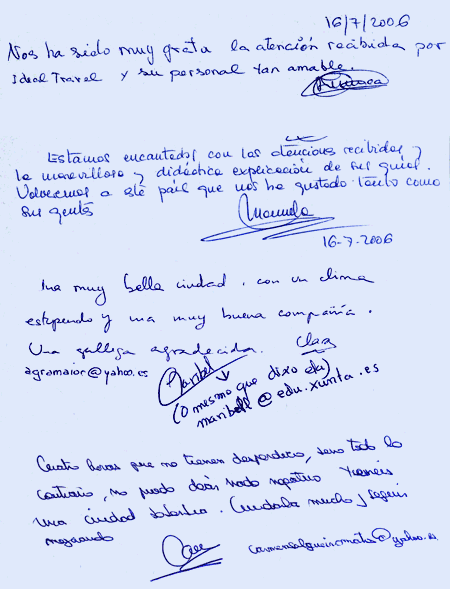 16/7/2006
Nos ha sido muy grata la atención recibida por
Ideal Travel y su personal tan amable.
Estamos encantados con las atenciones recibidas y
la maravillosa y didáctica explicación de sus guías.
Volveremos a este país que nos ha gustado tanto como
sus gentes
Manuela
16-7-2006
Una muy bella ciudad, con un clima
estupendo y una muy buena compañía.
Una gallega agradecida. Clara
agromaior@yahoo.es
Maribel
(O mesmo que dixo ela)
maribell@edu.xunta.es
Cuatro horas que no tienen desperdicio, sino todo lo
contrario, no puedo decir nada negativo
una ciudad . Cuidadla mucho y seguir
mejorando